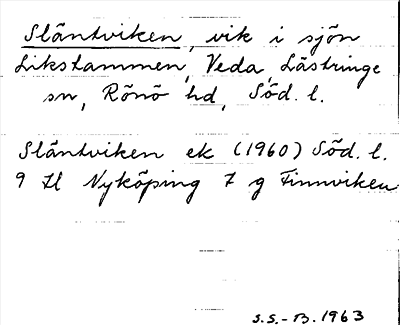 Släntviken, vik i sjön
Likstammen, Veda, Lästringe
sn, Rönö hd, Söd. l.
Släntviken ek (1960) Söd. l.
9 H Nyköping 7 g Finnviken
S.S.-B. 1963